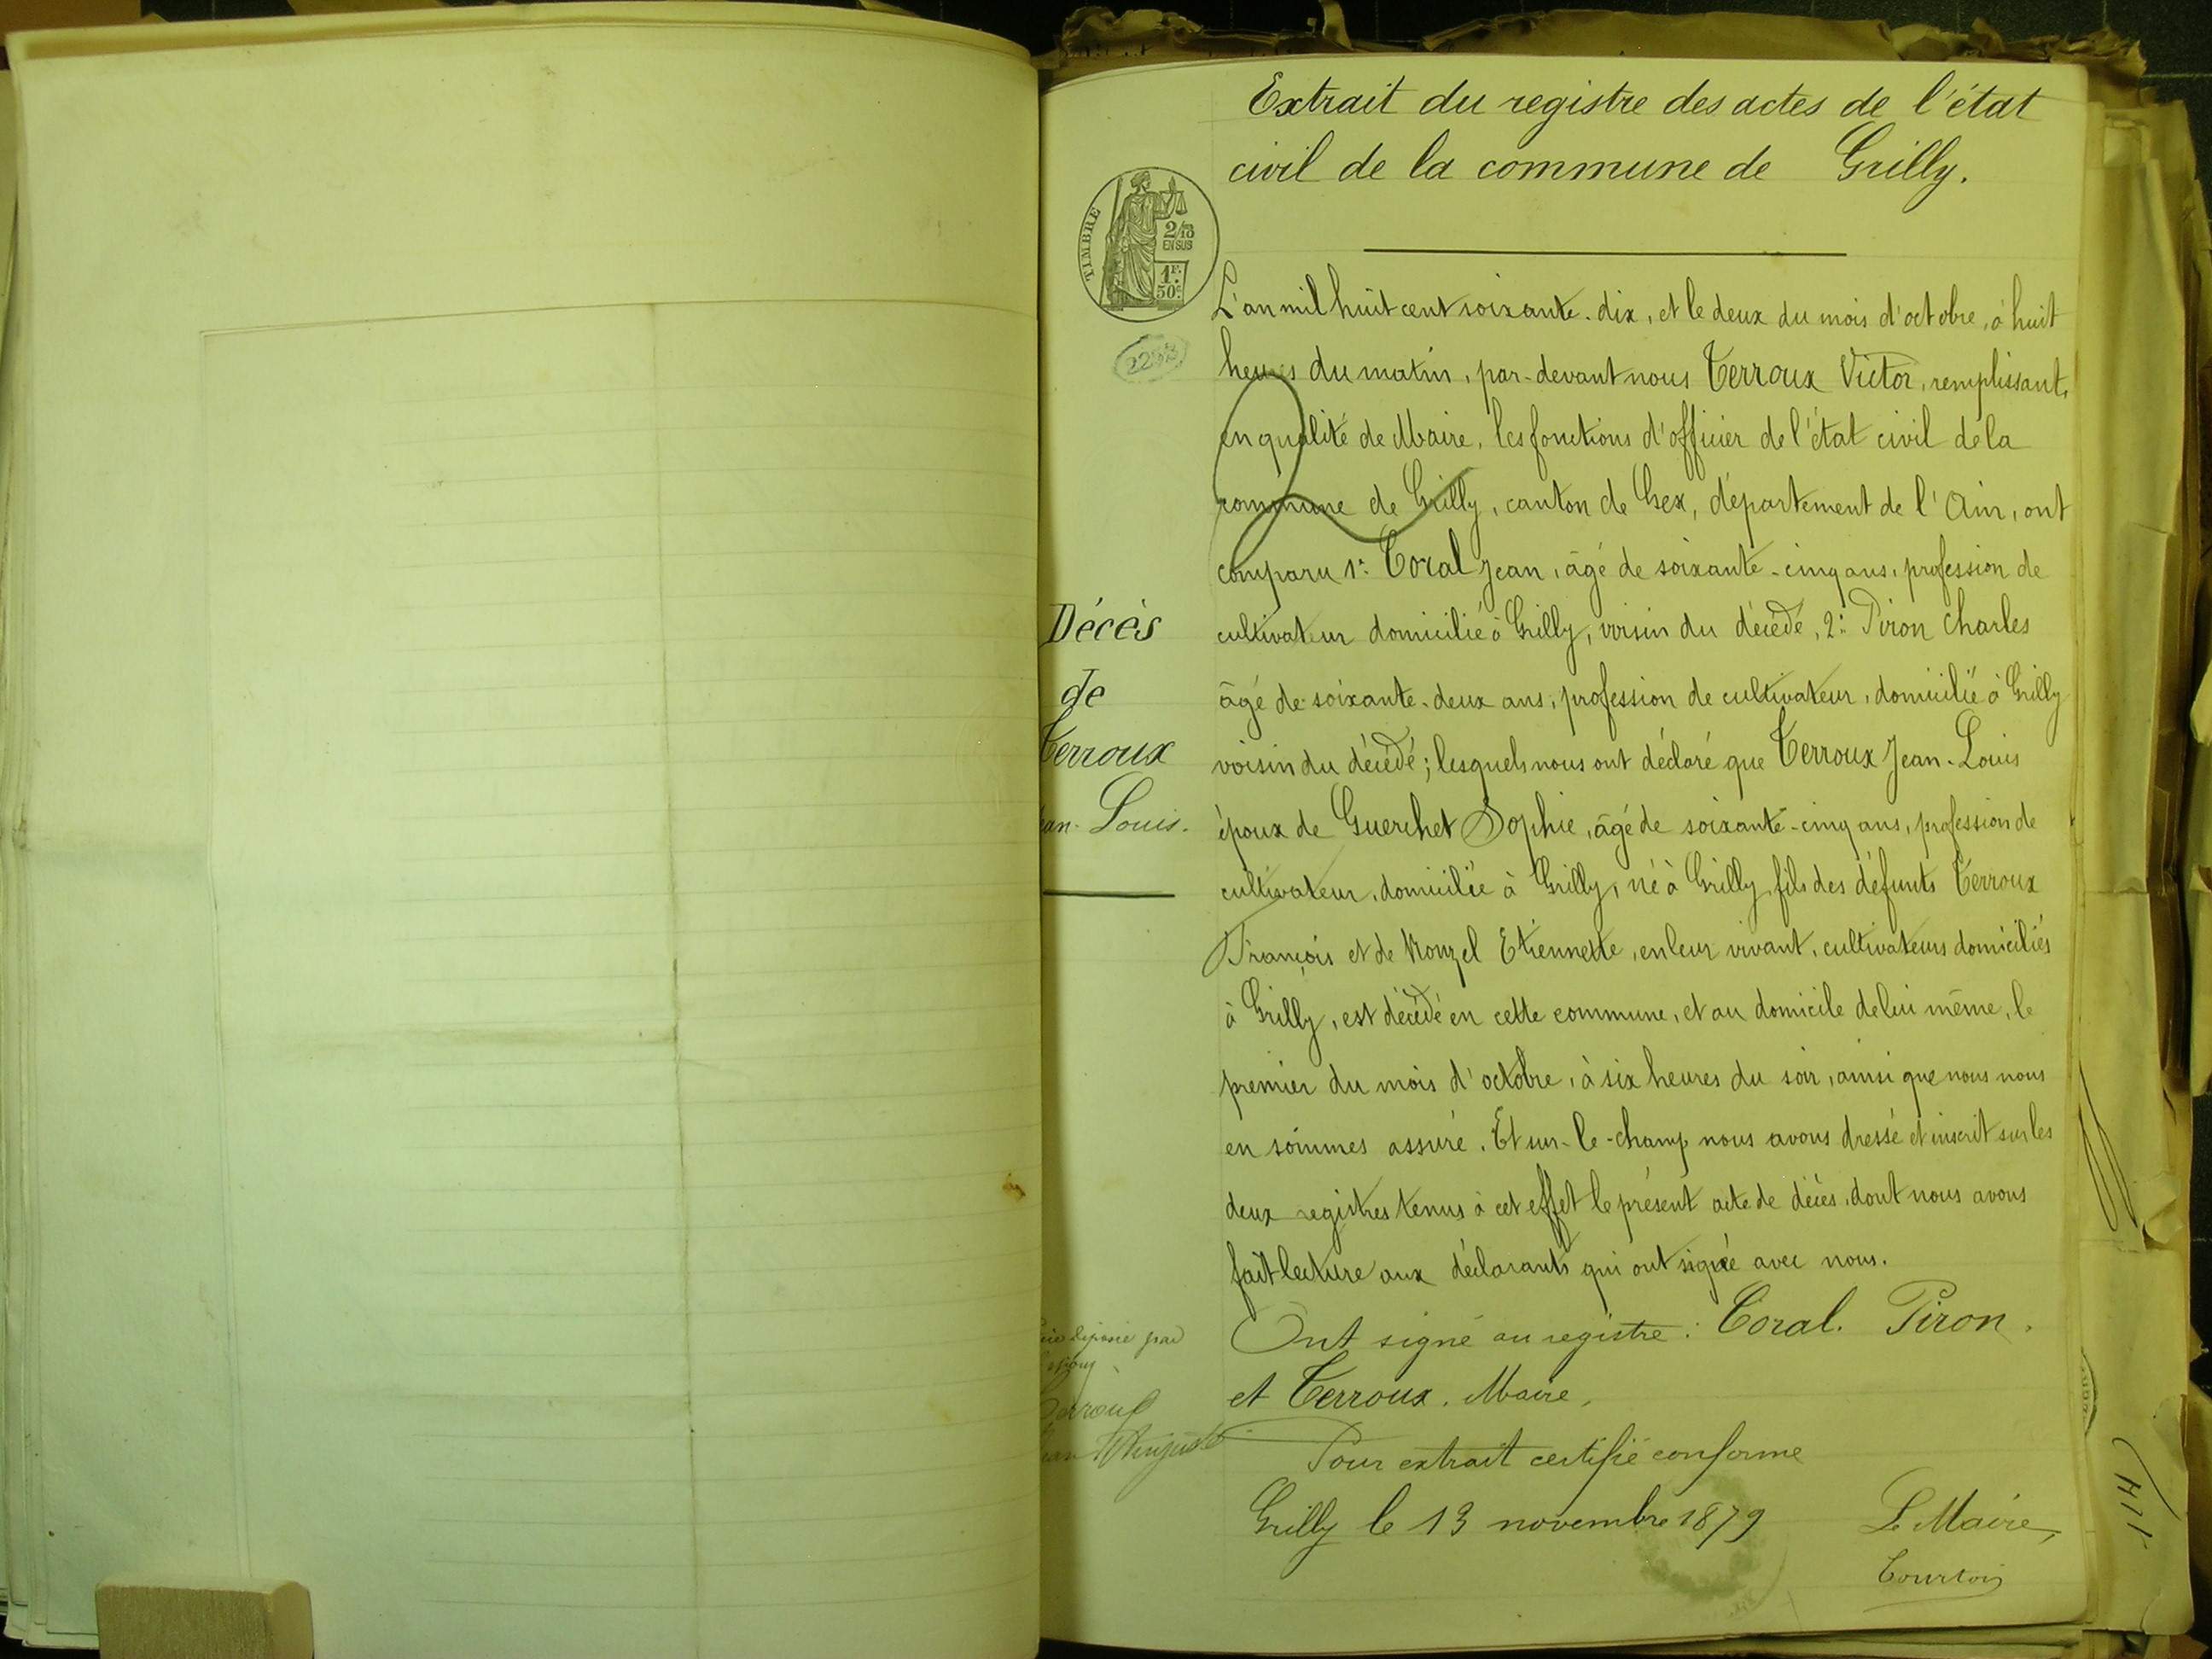 Extrait du registre des actes de l'état
civil de la commune de Grilly.
TIMBRE
2/10
EN SUS
1F.
50c.
L'an mil huit cent soixante-dix, et le deux du mois d'octobre, à huit
heures du matin, par-devant nous Terroux Victor, remplissant,
en qualité de Maire, les fonctions d'officier de l'état civil de la
commune de Grilly, canton de Gex, département de l'Ain, ont
comparu 1° Toral Jean, âgé de soixante-cinq ans, profession de
cultivateur domicilié à Grilly, voisin du décédé, 2° Piron Charles
âgé de soixante-deux ans, profession de cultivateur, domicilié à Grilly
voisin du décédé; lesquels nous ont déclaré que Terroux Jean-Louis
époux de Guerchet Sophie, âgé de soixante-cinq ans, profession de
cultivateur, domicilié à Grilly, né à Grilly, fils des défunts Terroux
François et de Etiennette, en leur vivant, cultivateurs domiciliés
à Grilly, est décédé en cette commune, et au domicile de lui même, le
premier du mois d'octobre, à six heures du soir, ainsi que nous nous
en sommes assuré. Et sur-le-champ nous avons dressé et inscrit sur les
deux registres tenus à cet effet le présent acte de décès, dont nous avons
fait lecture aux déclarants qui ont signé avec nous.
Ont signé au registre: Toral. Piron.
et Terroux. Maire.
Pour extrait certifié conforme
Grilly le 13 novembre 1879
Le Maire,
Courtois
Décès
de
Terroux
an-Louis.
déposée par